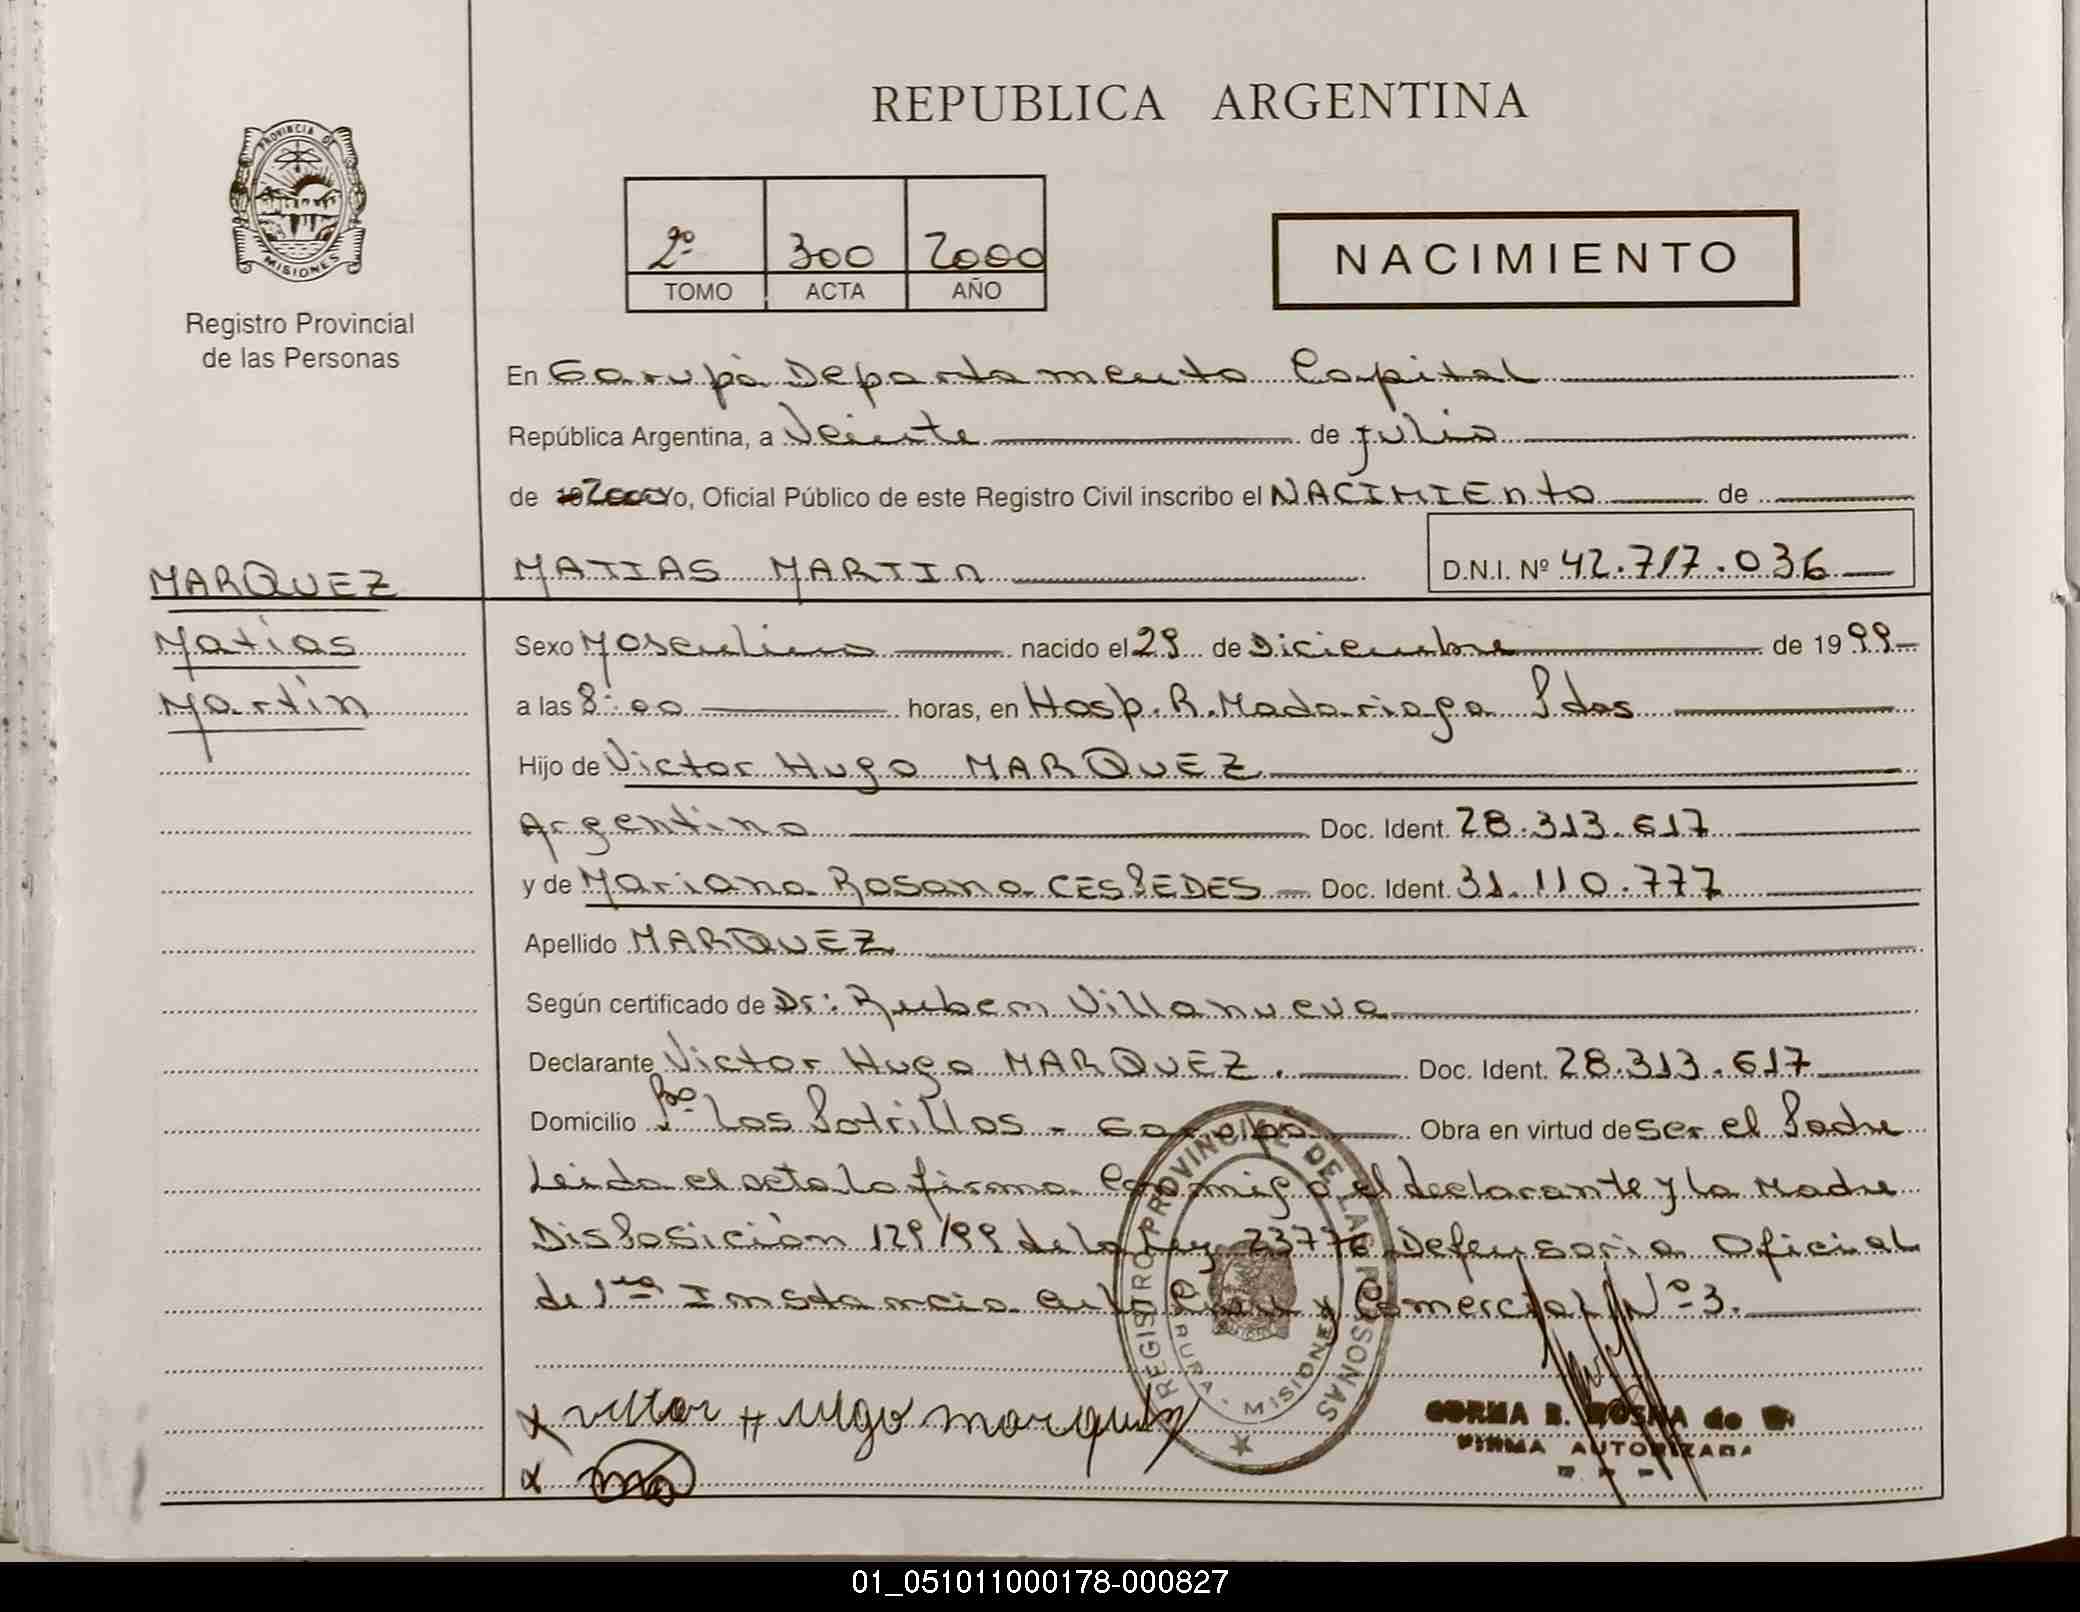 REPUBLICA ARGENTINA
PROVINCIA DE
MISIONES
Registro Provincial
de las Personas
2º 300 2000
TOMO ACTA AÑO
NACIMIENTO
En Garupà Departamento Capital
República Argentina, a Veinte de julio
de 2000 Yo, Oficial Público de este Registro Civil inscribo el NACIMIEnto de
MARQUEZ
MATIAS MARTIn
D.N.I. Nº 42.717.036
Matías
Sexo Masculino nacido el 29 de Diciembre de 1999
Martín
a las 8:00 horas, en Hosp. R. Madariaga Pdas
Hijo de Victor Hugo MARQUEZ
Argentino Doc. Ident. 28.313.617
y de Mariana Rosana CESPEDES Doc. Ident. 31.110.777
Apellido MARQUEZ
Según certificado de Dr: Rubem Villanueva
Declarante Victor Hugo MARQUEZ. Doc. Ident. 28.313.617
Domicilio Bº Los Potrillos - Garupa Obra en virtud de ser el Padre
Leida el acta la firma conmigo el declarante y la Madre
Disposición 129/99 de la Ley 23776 Defensoria Oficial
de 1ra Instancia en lo Civil y Comercial Nº 3.
REGISTRO PROVINCIAL DE LAS PERSONAS
MISIONES
x victor Hugo marquez
x
FIRMA AUTORIZADA
01_051011000178-000827